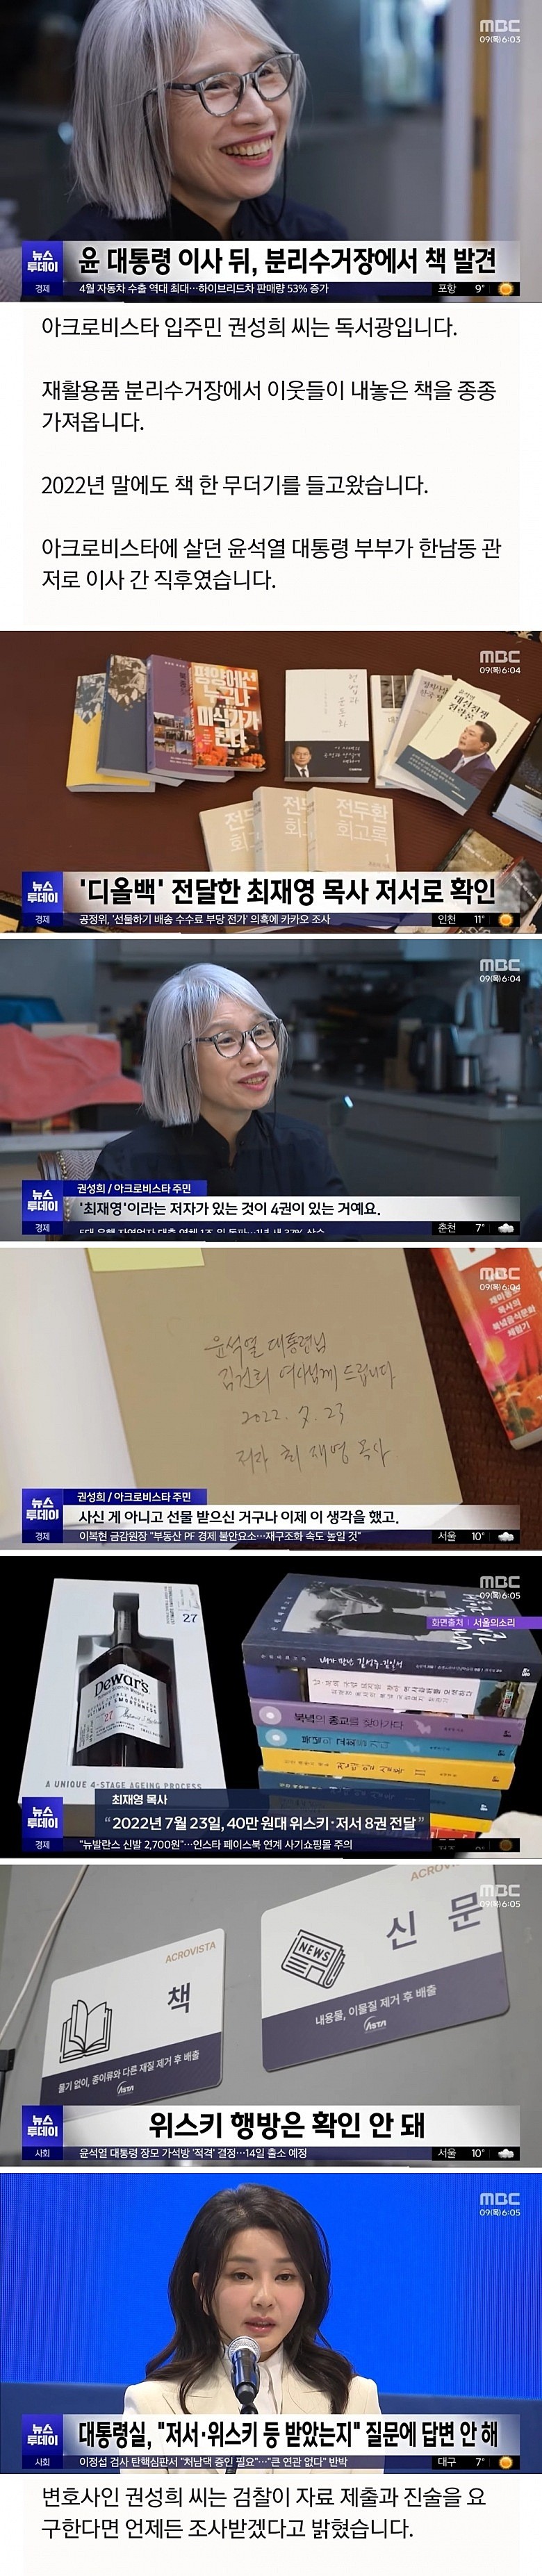 MBC
09(목)6:03
뉴스
투데이
윤 대통령 이사 뒤, 분리수거장에서 책 발견
경제
4월 자동차 수출 역대 최대…하이브리드차 판매량 53% 증가
포항 9°
아크로비스타 입주민 권성희 씨는 독서광입니다.
재활용품 분리수거장에서 이웃들이 내놓은 책을 종종
가져옵니다.
2022년 말에도 책 한 무더기를 들고왔습니다.
아크로비스타에 살던 윤석열 대통령 부부가 한남동 관
저로 이사 간 직후였습니다.
MBC
09(목)6:04
평양에선
누구나
미식가가
된다
전두환
회고록
뉴스
투데이
'디올백' 전달한 최재영 목사 저서로 확인
경제
공정위, '선물하기 배송 수수료 부당 전가' 의혹에 카카오 조사
인천 11°
MBC
09(목)6:04
권성희 / 아크로비스타 주민
뉴스
투데이
'최재영'이라는 저자가 있는 것이 4권이 있는 거예요.
경제
춘천 7°
MBC
09(목)6:04
윤석열 대통령님
김건희 여사님께 드립니다
2022. 7. 23
저자 최재영 목사
권성희 / 아크로비스타 주민
뉴스
투데이
사신 게 아니고 선물 받으신 거구나 이제 이 생각을 했고.
경제
이복현 금감원장 "부동산 PF 경제 불안요소…재구조화 속도 높일 것"
서울 10°
MBC
09(목)6:05
화면출처 : 서울의소리
27
Dewar's
27
A UNIQUE 4-STAGE AGEING PROCESS
내가 만난 김성주-김일성
북녘의 종교를 찾아가다
북녘의 교회를 가다
최재영 목사
뉴스
투데이
"2022년 7월 23일, 40만 원대 위스키·저서 8권 전달"
경제
"뉴발란스 신발 2,700원"…인스타 페이스북 연계 사기쇼핑몰 주의
MBC
09(목)6:05
ACROVISTA
책
물기 없이, 종이류와 다른 재질 제거 후 배출
ASTA
ACROVISTA
신문
NEWS
내용물, 이물질 제거 후 배출
ASTA
뉴스
투데이
위스키 행방은 확인 안 돼
사회
윤석열 대통령 장모 가석방 '적격' 결정…14일 출소 예정
서울 10°
MBC
09(목)6:05
뉴스
투데이
대통령실, "저서·위스키 등 받았는지" 질문에 답변 안 해
사회
이정섭 검사 탄핵심판서 "처남댁 증인 필요"…"큰 연관 없다" 반박
대구 7°
변호사인 권성희 씨는 검찰이 자료 제출과 진술을 요
구한다면 언제든 조사받겠다고 밝혔습니다.